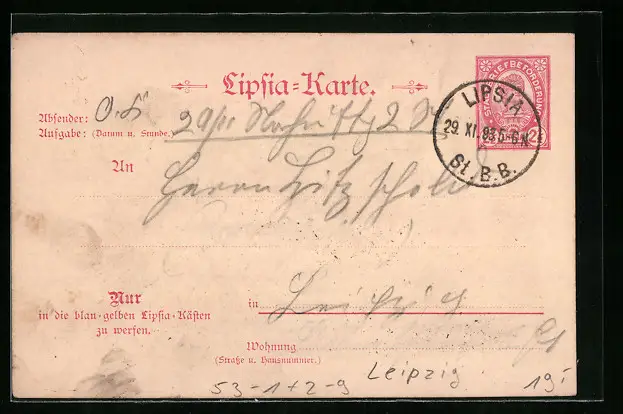 Lipsia-Karte.
STADTBRIEFBEFÖRDERUNG
2
LIPSIA
29. XI. 93 5-6 N
St. B. B.
Absender:
Aufgabe: (Datum u. Stunde.) 29/11 Nachmittg 2
An
Herrn Hitzschold
Nur
in die blau-gelben Lipsia-Kästen
zu werfen.
in Leipzig
Wohnung
(Straße u. Hausnummer.)
53-1+2-9 Leipzig 19.-